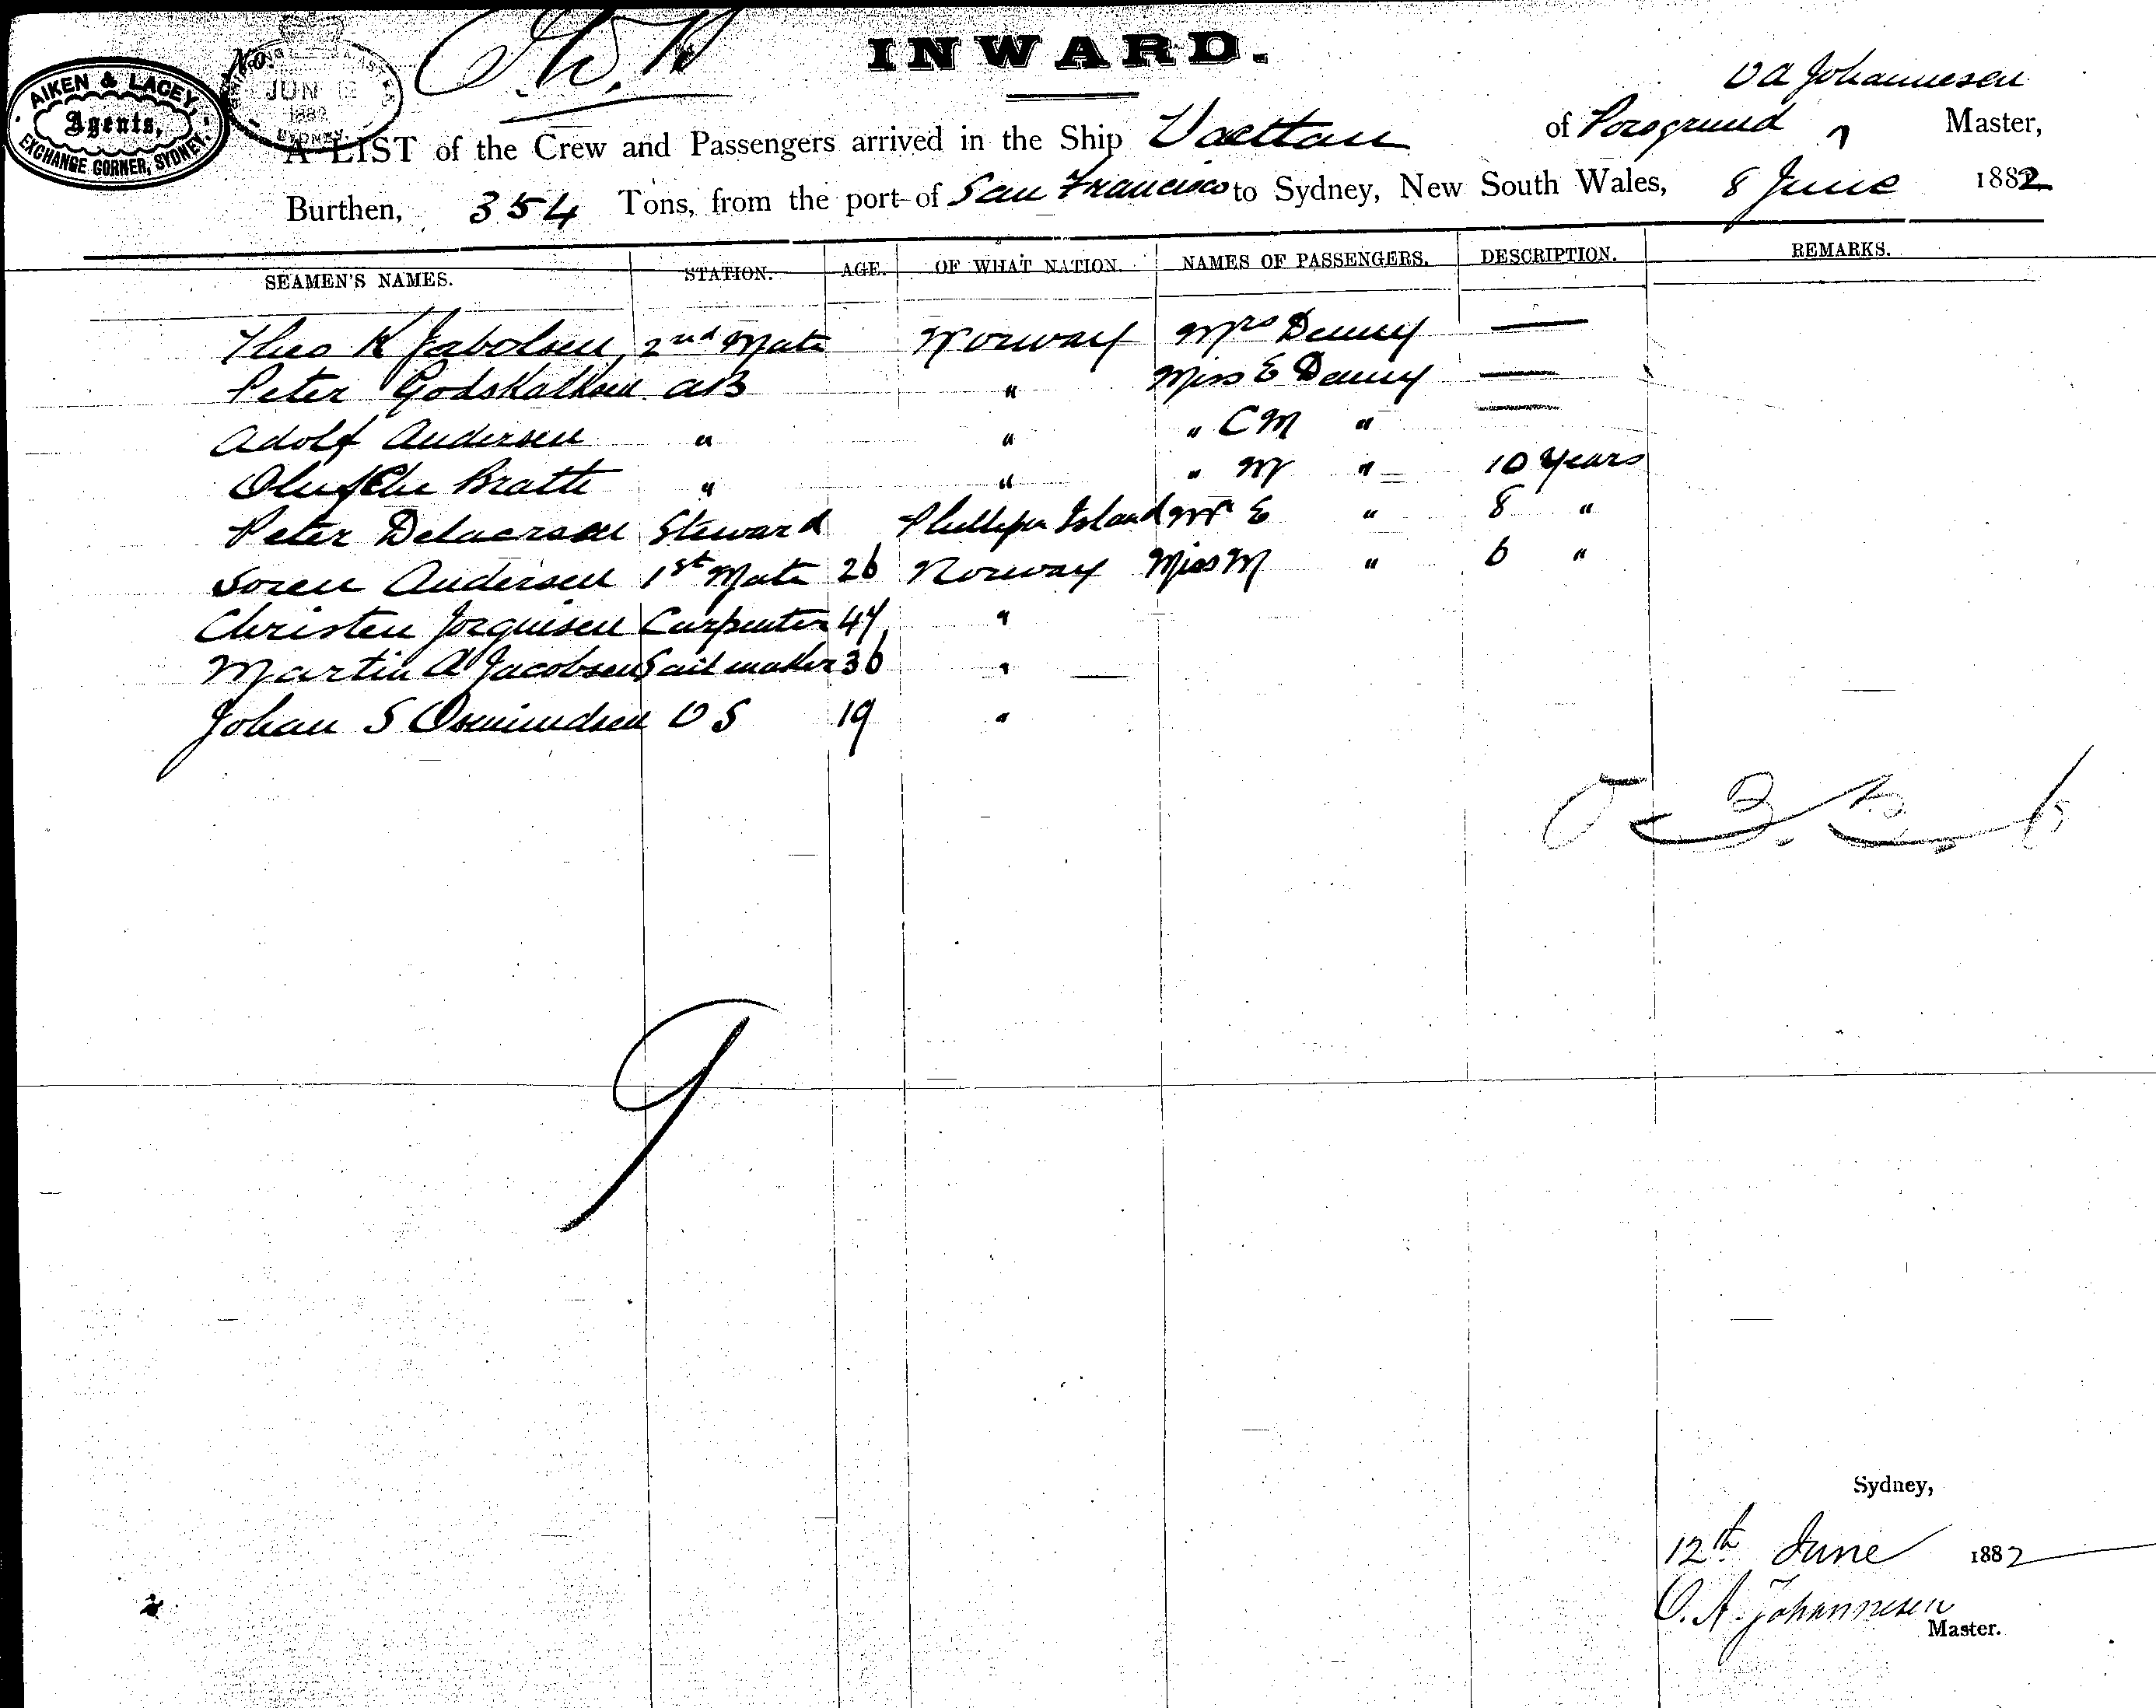 INWARD.
AIKEN & LACEY,
Agents,
EXCHANGE CORNER, SYDNEY.
No.
JUN 12
1882
SYDNEY.
O A Johannesen
A LIST of the Crew and Passengers arrived in the Ship Vaettan of Porsgrund Master,
Burthen, 354 Tons, from the port of San Francisco to Sydney, New South Wales, 8 June 1882
SEAMEN'S NAMES. STATION. AGE. OF WHAT NATION. NAMES OF PASSENGERS. DESCRIPTION. REMARKS.
Theo K 2nd Mate Norway Mrs Denny —
Peter Godskalksen AB " Miss E Denny —
Adolf Andersen " " " C M " —
Bratte " " " M " 10 Years
Peter Steward Island Mr E " 8 "
Soren Andersen 1st Mate 26 Norway Miss M " 6 "
Christen Jorguisen Carpenter 47 "
Martin A Jacobsen Sail maker 36 "
Johan S Osmundsen OS 19 "
9
Sydney,
12th June 1882
O. A. Johannesen
Master.